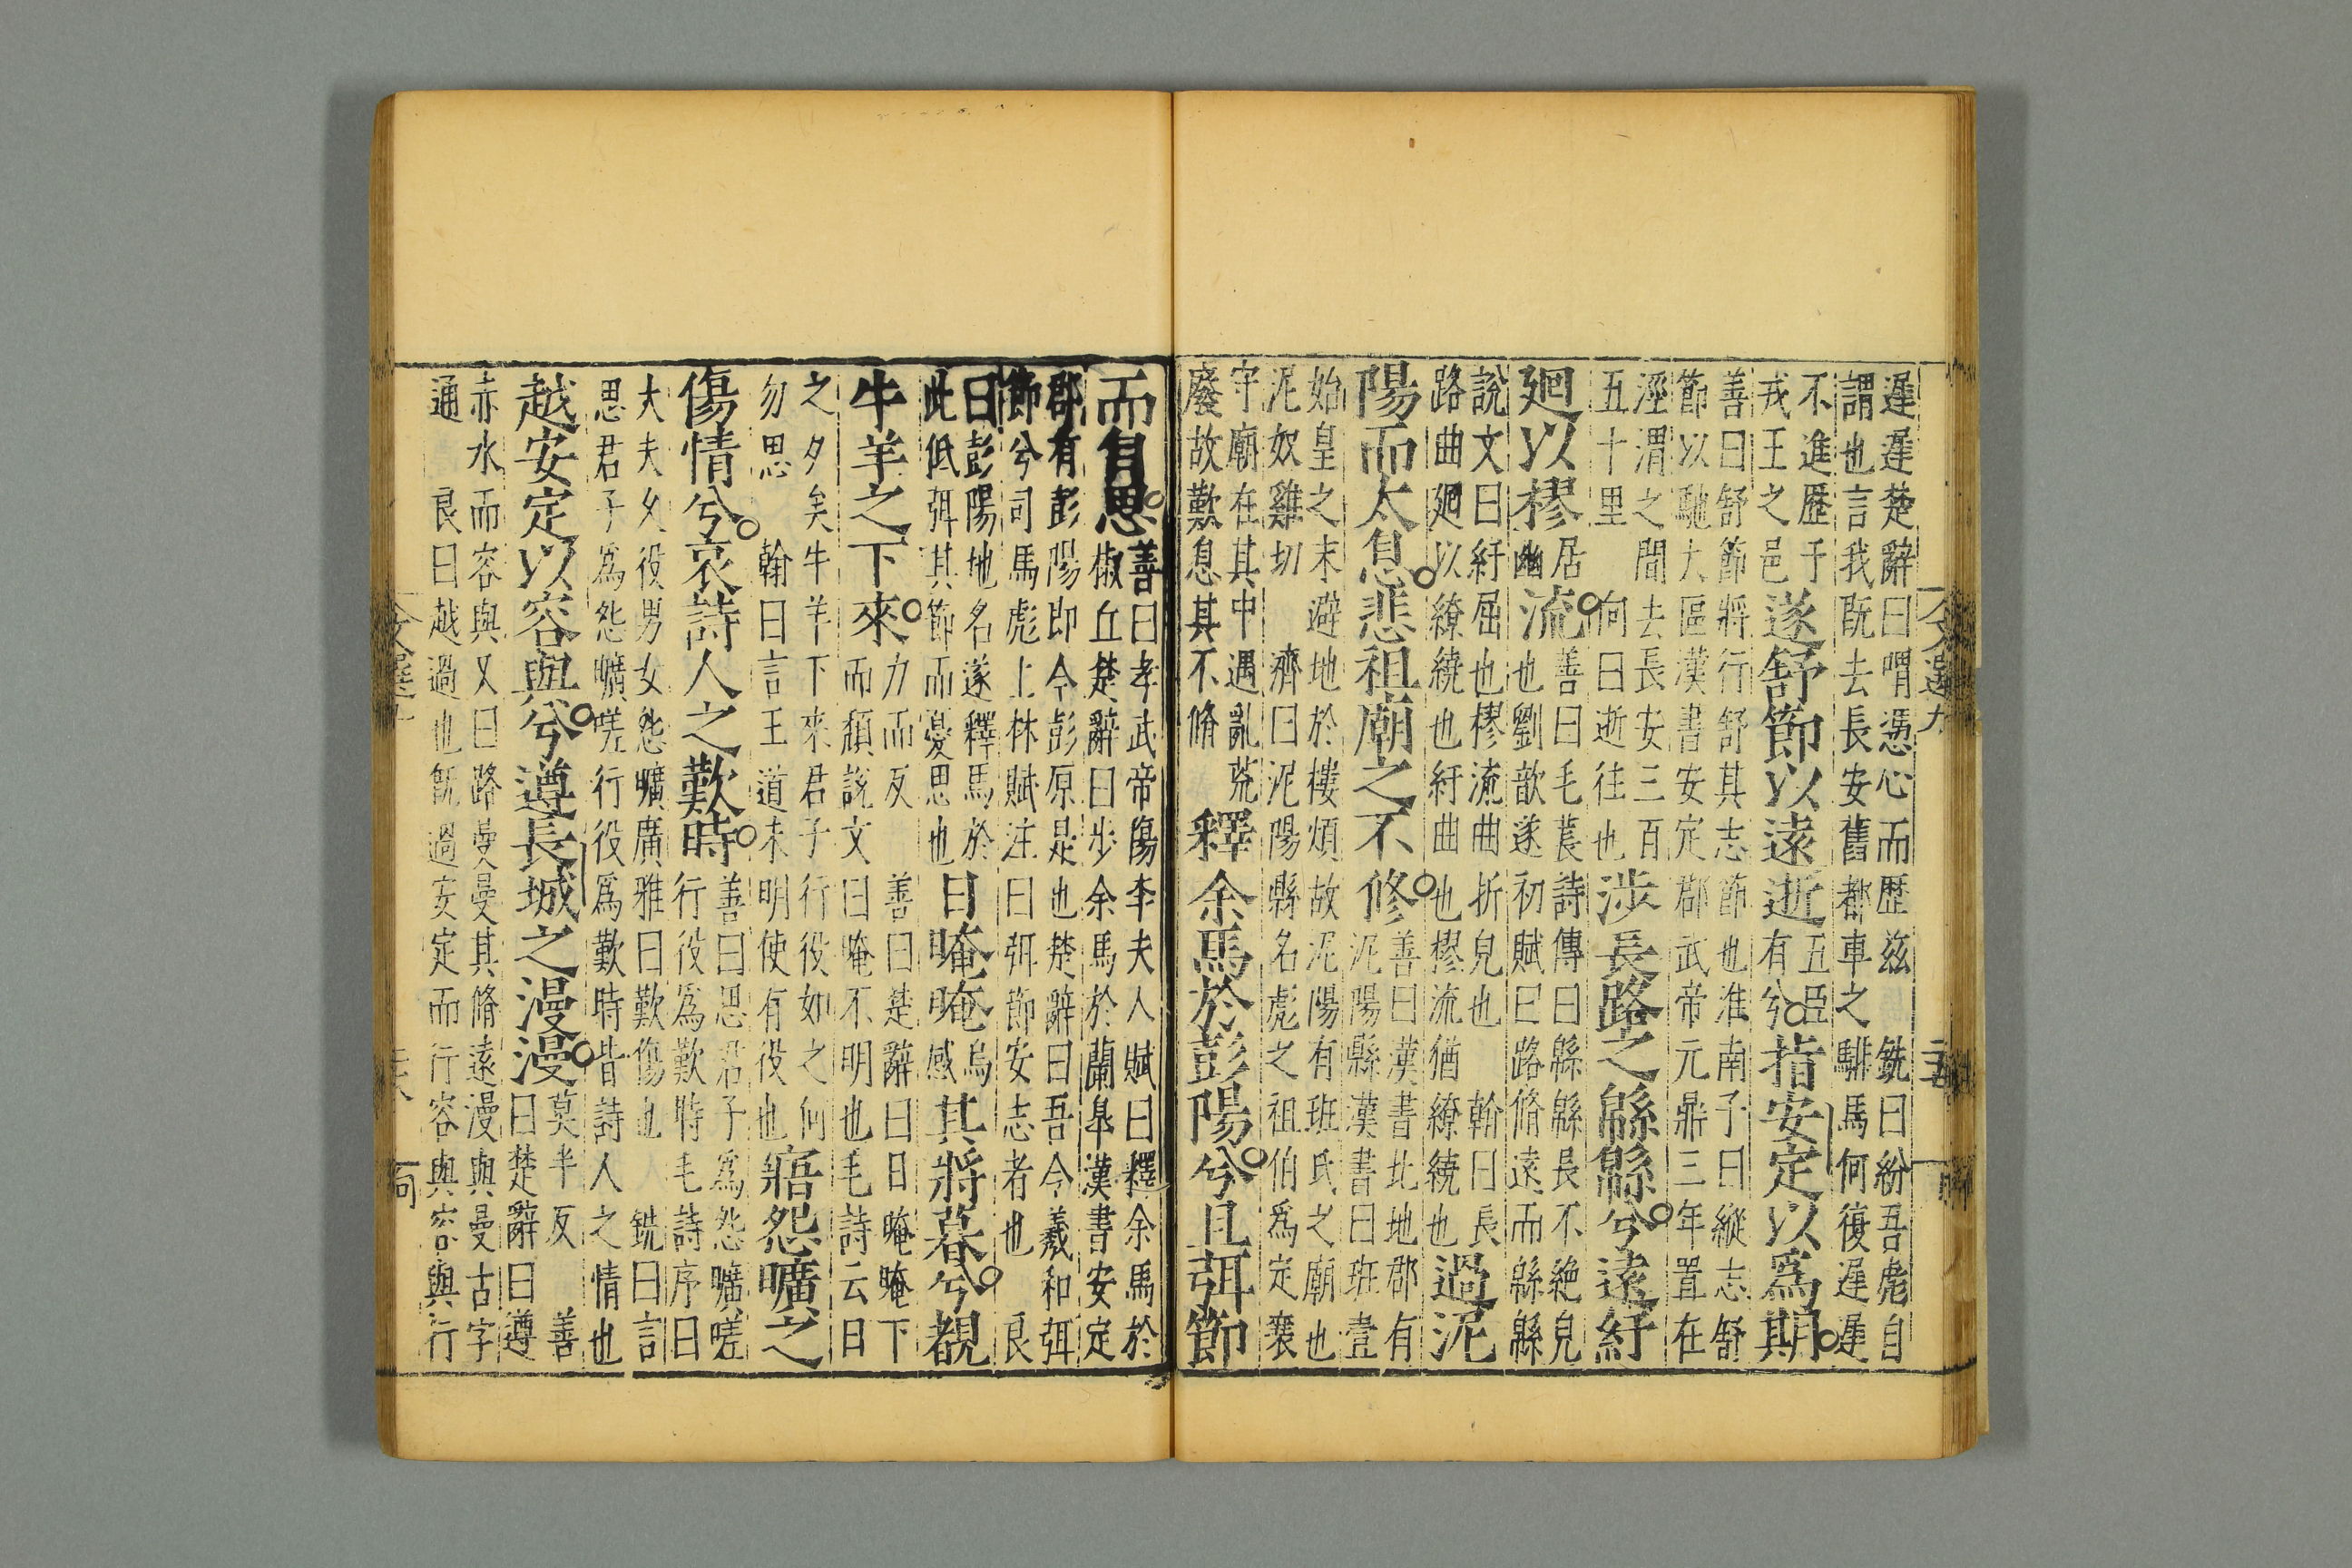 遲遲楚辭曰喟憑心而歴兹　銑曰紛吾彪自
謂也言我既去長安舊都車之騑馬何復遲遲
不進歴于
戎王之邑
遂舒節以遠逝
五臣
有兮
指安定以爲期
善曰舒節將行舒其志節也淮南子曰縱志舒
節以馳大區漢書安定郡武帝元鼎三年置在
涇渭之間去長安三百
五十里　向曰逝往也
涉長路之緜緜兮遠紆
廻以樛
居
幽
流
善曰毛萇詩傳曰緜緜長不絶皃
也劉歆遂初賦曰路脩遠而緜緜
說文曰紆屈也樛流曲折皃也　翰曰長
路曲廻以繚繞也紆曲也樛流猶繚繞也
過泥
陽而太息悲祖廟之不修
善曰漢書北地郡有
泥陽縣漢書曰班壹
始皇之末避地於樓煩故泥陽有班氏之廟也
泥奴雞切　濟曰泥陽縣名彪之祖伯爲定襄
宇廟在其中遇亂荒
廢故歎息其不脩
釋余馬於彭陽兮且弭節
而自思
善曰孝武帝傷李夫人賦曰釋余馬於
椒丘楚辭曰步余馬於蘭皐漢書安定
郡有彭陽即今彭原是也楚辭曰吾令羲和弭
節兮司馬彪上林賦注曰弭節安志者也　良
曰彭陽地名遂釋馬於
此低弭其節而憂思也
日晻晻
烏
感
其將暮兮覩
牛羊之下來
力而反
而頽說文
善曰楚辭曰日晻晻下
曰晻不明也毛詩云日
之夕矣牛羊下來君子行役如之何
勿思　翰曰言王道未明使有役也
寤怨曠之
傷情兮哀詩人之歎時
善曰思君子爲怨曠嗟
行役爲歎時毛詩序曰
大夫久役男女怨曠廣雅曰歎傷也　銑曰言
思君子爲怨曠嗟行役爲歎時皆詩人之情也
越安定以容與兮遵長城之漫漫
莫半反　善
曰楚辭曰遵
赤水而容與又曰路曼曼其脩遠漫與曼古字
通　良曰越過也旣過安定而行容與容與行